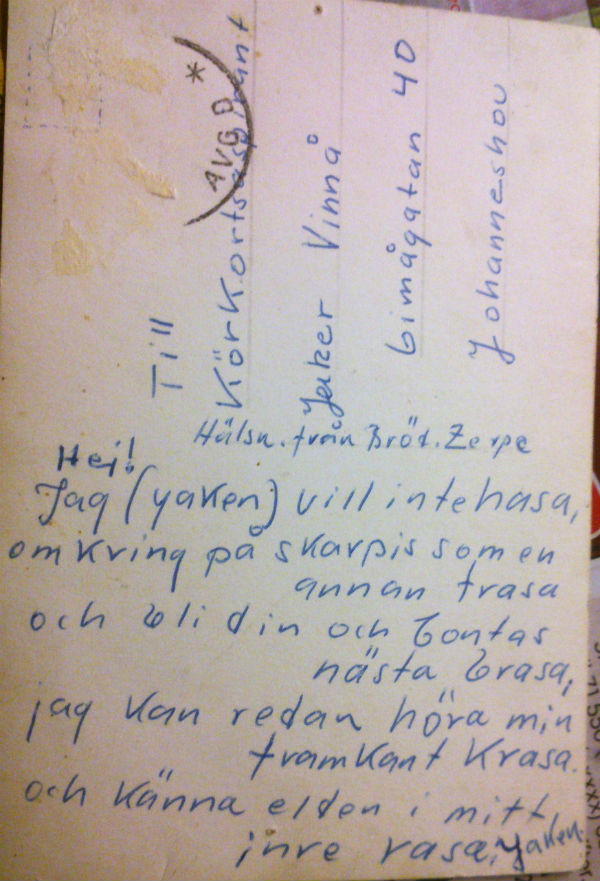 AVG D *
Till
Körkortsaspirant
Jaker Vinnå
bimågatan 40
Johanneshov
Hälsn. från Bröd. Zerpe
Hej!
Jag (yaken) vill inte hasa,
omkring på skarpis som en
annan trasa
och bli din och bontas
nästa brasa,
jag kan redan höra min
framkant krasa.
och känna elden i mitt
inre rasa, yaken.